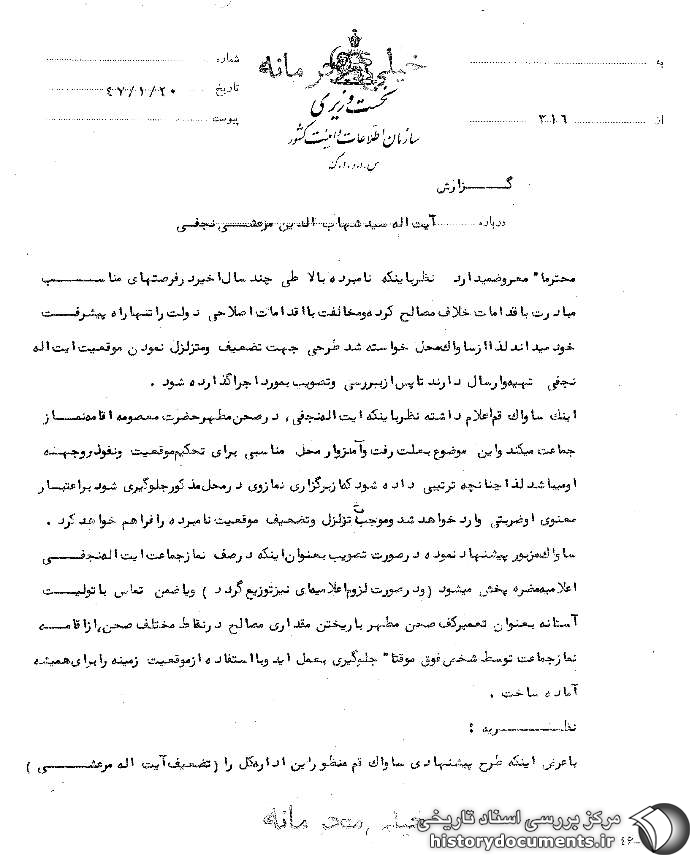 خیلی محرمانه
به
شماره
تاریخ ۴۷/۱/۲۰
نخست وزیری
از ۳۱۶
پیوست
سازمان اطلاعات و امنیت کشور
س.ا.و.ا.ک
گـــزارش
درباره آیت اله سید شهاب الدین مرعشـی نجفـی
محترما" معروضمیدارد نظرباینکه نامبرده بالا طی چند سال اخیر در فرصتهای مناســـب
مبادرت باقدامات خلاف مصالح کرده ومخالفت بااقدامات اصلاحی دولت را تنها راه پیشرفــت
خود میداند لذا از ساواک محل خواسته شد طرحی جهت تضعیف ومتزلزل نمودن موقعیت ایت اله
نجفی تهیه وارسال دارند تا پس از بررسی وتصویب بمورد اجرا گذارده شود .
اینک ساواک قم اعلام داشته نظرباینکه ایت اله نجفی، در صحن مطهر حضرت معصومه اقامه نمــاز
جماعت میکند واین موضوع بعلت رفت وآمد زوار محل مناسبی برای تحکیم موقعیت ونفوذ ووجهــه
او میباشد لذا چنانچه ترتیبی داده شود که از برگزاری نماز وی در محل مذکور جلوگیری شود بر اعتبــار
معنوی او ضربتی وارد خواهد شد وموجب تزلزل وتضعیف موقعیت نامبرده را فراهم خواهد کرد .
ساواک مزبور پیشنهاد نموده در صورت تصویب بعنوان اینکه در صف نماز جماعت ایت اله نجفــی
اعلامیه مضره پخش میشود (ودر صورت لزوم اعلامیه‌ای نیز توزیع گردد ) ویا ضمن تماس با تولیــت
آستانه بعنوان تعمیر کف صحن مطهر با ریختن مقداری مصالح در نقاط مختلف صحن، از اقامــه
نماز جماعت توسط شخص فوق موقتا" جلوگیری بعمل اید وبا استفاده از موقعیت زمینه را برای همیشه
آماده ساخت .
نظــــریه :
با عرض اینکه طرح پیشنهادی ساواک قم منظور این اداره کل را (تضعیف آیت اله مرعشـــی )
خیلی محرمانه
مرکز بررسی اسناد تاریخی
historydocuments.ir